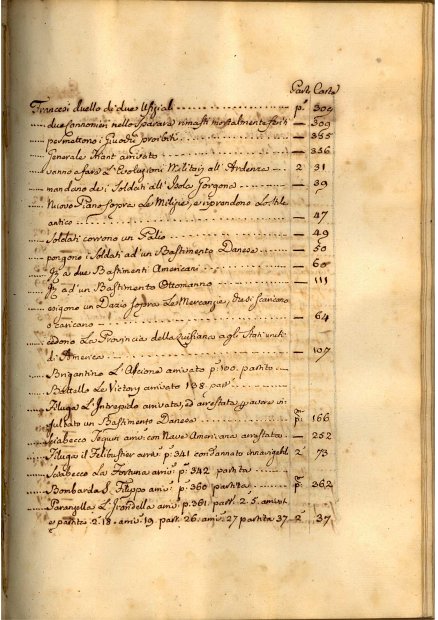 Part. Carte
Francesi duello di due Ufiziali p.ª 304
due Cannonieri nello sparare rimasti mortalmente feriti — 309
permettono i Giuochi proibiti — 335
Generale arrivato — 336
vanno a fare l'Evoluzioni Militari all'Ardenza 2 31
mandano dei Soldati all'Isola Gorgona — 39
Nuovo Piano sopra le Milizie, e riprendono lo stile
antico — 47
Soldati corrono un Palio — 49
pongono i Soldati ad un Bastimento Danese — 50
a due Bastimenti Americani — 60
ad un Bastimento Ottomanno — 111
esigono un Dazio sopra le Mercanzie, che si scaricono
o caricano — 64
cedono la Provincia della Luisiana agli Stati uniti
di America — 107
Brigantino L'Alcione arrivato p. 100. partito
Battello Le Victory arrivato 138. part.
Filuga L'Intrepido arrivata, ed arrestata
un Bastimento Danese p.ª 166
Sciabecco con Nave Americana arrestata — 252
Filuga il Felibustier arri. p. 341 condannato innavigabil 2ª 73
Sciabecco La Fortuna arriv. p. 342 partita
Bombarda S. Filippo arriv. p. 360 partita p.ª 362
Paranzella L'Irondella arriv. p. 361. part. 2. 5. arrivat
e partita 2. 18. arriv. 19. part. 26. arriv. 27 partita 37. 2ª 37